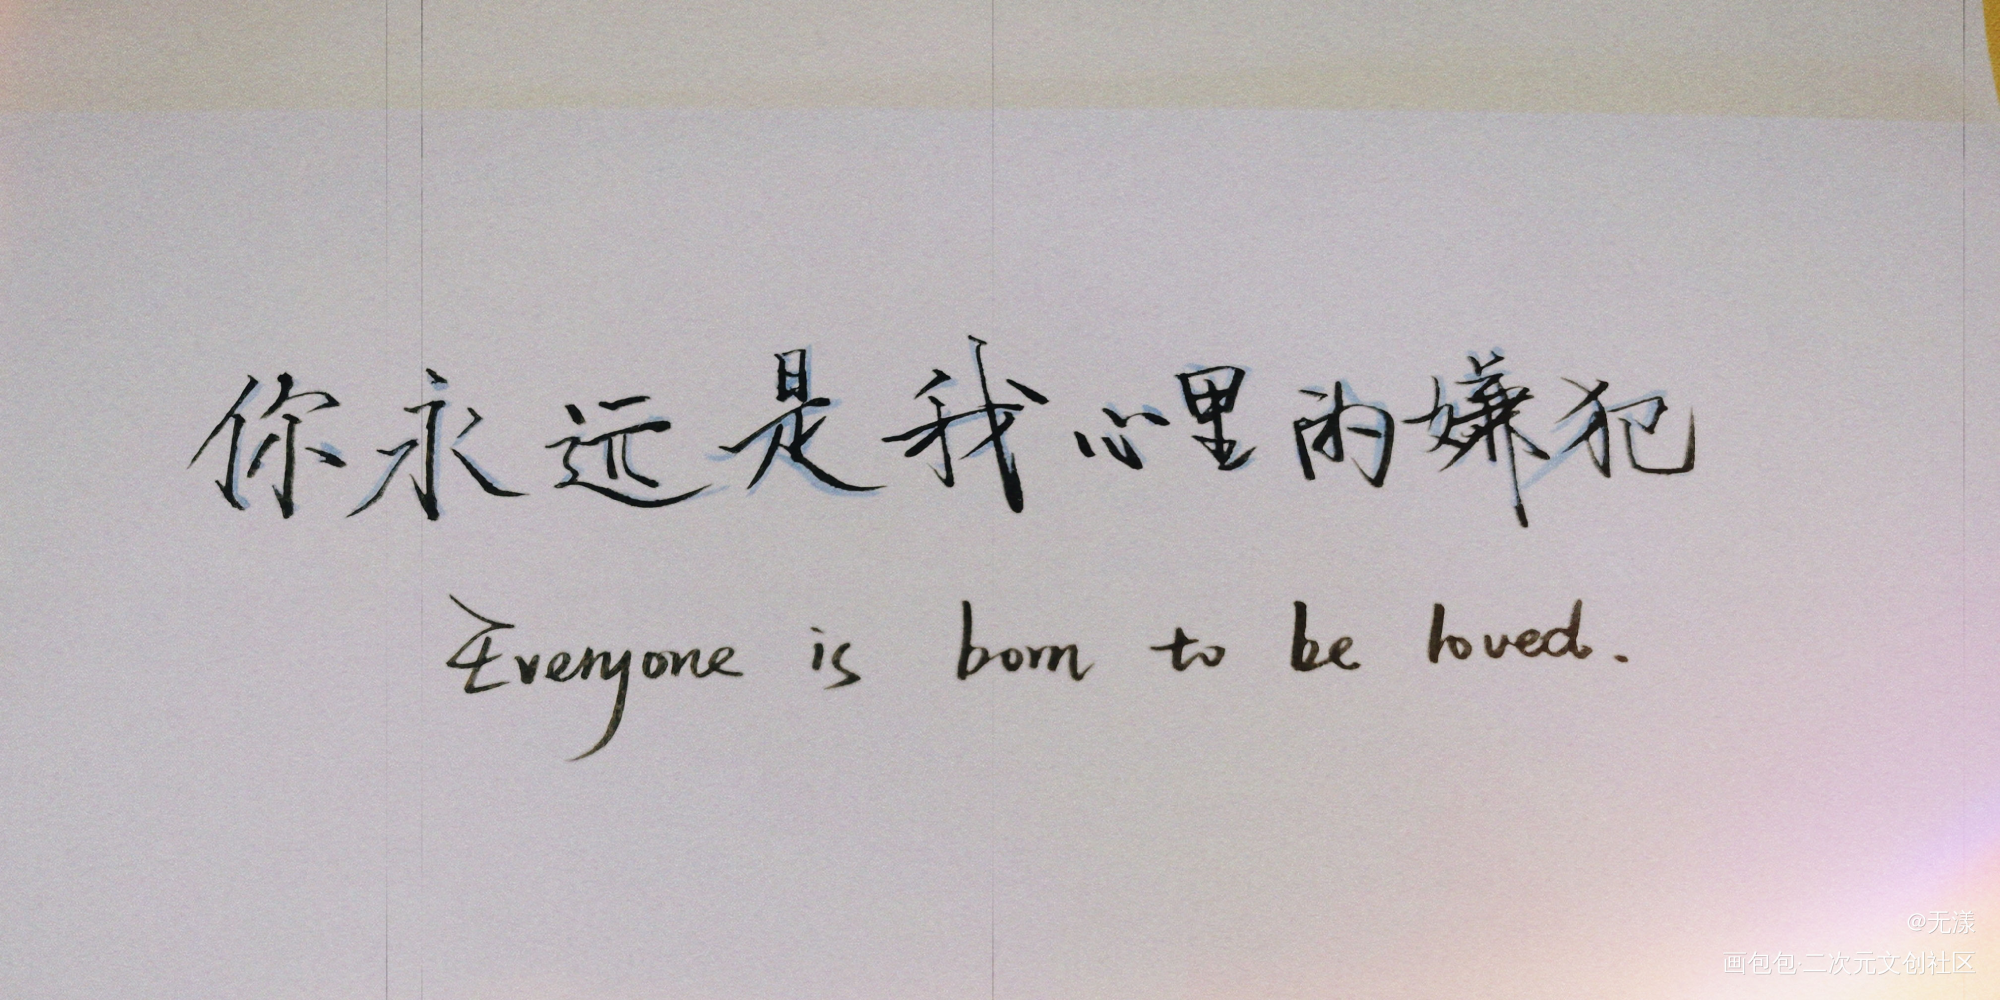 你永远是我心里的嫌犯
Everyone is born to be loved.
@无漾
画包包·二次元文创社区